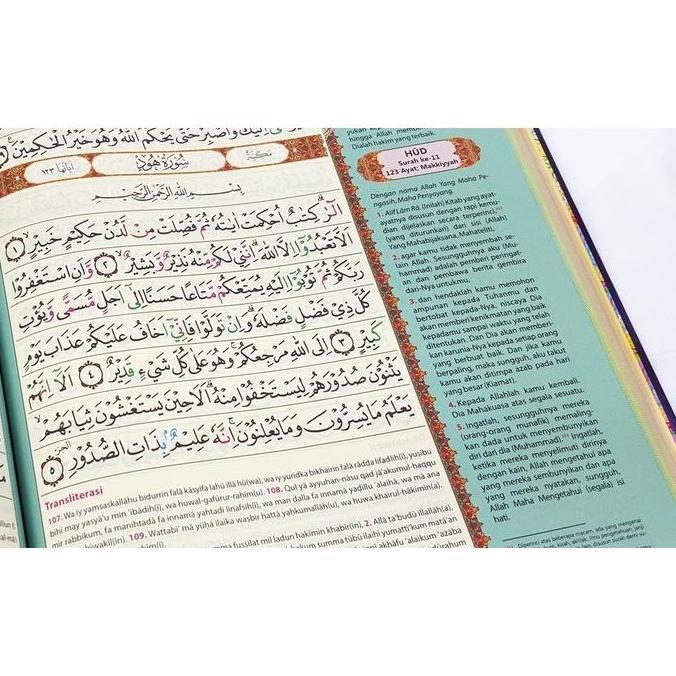 إِلَيْكَ وَاصْبِرْ حَتّٰى يَحْكُمَ اللّٰهُ وَهُوَ خَيْرُ الْحٰكِمِيْنَ
مَكِّيَّة
سُوْرَةُ هُوْدٍ
اٰيَاتُهَا ١٢٣
بِسْمِ اللّٰهِ الرَّحْمٰنِ الرَّحِيْمِ
الۤرٰ ۗ كِتٰبٌ اُحْكِمَتْ اٰيٰتُهٗ ثُمَّ فُصِّلَتْ مِنْ لَّدُنْ حَكِيْمٍ خَبِيْرٍ ١
اَلَّا تَعْبُدُوْٓا اِلَّا اللّٰهَ ۗ اِنَّنِيْ لَكُمْ مِّنْهُ نَذِيْرٌ وَّبَشِيْرٌ ٢ وَّاَنِ اسْتَغْفِرُوْا
رَبَّكُمْ ثُمَّ تُوْبُوْٓا اِلَيْهِ يُمَتِّعْكُمْ مَّتَاعًا حَسَنًا اِلٰٓى اَجَلٍ مُّسَمًّى وَّيُؤْتِ
كُلَّ ذِيْ فَضْلٍ فَضْلَهٗ ۗ وَاِنْ تَوَلَّوْا فَاِنِّيْٓ اَخَافُ عَلَيْكُمْ عَذَابَ يَوْمٍ
كَبِيْرٍ ٣ اِلَى اللّٰهِ مَرْجِعُكُمْ ۚ وَهُوَ عَلٰى كُلِّ شَيْءٍ قَدِيْرٌ ٤ اَلَآ اِنَّهُمْ
يَثْنُوْنَ صُدُوْرَهُمْ لِيَسْتَخْفُوْا مِنْهُ ۗ اَلَا حِيْنَ يَسْتَغْشُوْنَ ثِيَابَهُمْ ۙ
يَعْلَمُ مَا يُسِرُّوْنَ وَمَا يُعْلِنُوْنَ ۚ اِنَّهٗ عَلِيْمٌ ۢ بِذَاتِ الصُّدُوْرِ ٥
Transliterasi
107. Wa iy yamsaskallāhu biḍurrin falā kāsyifa lahū illā hū(wa), wa iy yuridka bikhairin falā rādda lifaḍlih(ī), yuṣību
bihī may yasyā'u min 'ibādih(ī), wa huwal-gafūrur-raḥīm(u). 108. Qul yā ayyuhan-nāsu qad jā'akumul-ḥaqqu
mir rabbikum, fa manihtadā fa innamā yahtadī linafsih(ī), wa man ḍalla fa innamā yaḍillu 'alaihā, wa mā ana
biwakīl(in). 109. Wattabi' mā yūḥā ilaika waṣbir ḥattā yaḥkumallāh(u), wa huwa khairul-ḥākimīn(a).
fuṣṣilat mil ladun ḥakīmin khabīr(in). 2. Allā ta'budū illallāh(a),
hingga Allah
Dialah hakim yang terbaik.
HŪD
Surah ke-11
123 Ayat; Makkiyyah
Dengan nama Allah Yang Maha Pe-
ngasih, Maha Penyayang.
1. Alif Lām Rā, (Inilah) Kitab yang ayat-
ayatnya disusun dengan rapi kemu-
dian dijelaskan secara terperinci,
(yang diturunkan) dari sisi (Allah)
Yang Mahabijaksana, Mahateliti,
2. agar kamu tidak menyembah se-
lain Allah. Sesungguhnya aku (Mu-
hammad) adalah pemberi peringat-
an dan pembawa berita gembira
dari-Nya untukmu,
3. dan hendaklah kamu memohon
ampunan kepada Tuhanmu dan
bertobat kepada-Nya, niscaya Dia
akan memberi kenikmatan yang baik
kepadamu sampai waktu yang telah
ditentukan. Dan Dia akan memberi-
kan karunia-Nya kepada setiap orang
yang berbuat baik. Dan jika kamu
berpaling, maka sungguh, aku takut
kamu akan ditimpa azab pada hari
yang besar (Kiamat).
4. Kepada Allahlah kamu kembali.
Dia Mahakuasa atas segala sesuatu.
5. Ingatlah, sesungguhnya mereka
(orang-orang munafik) memaling-
kan dada untuk menyembunyikan
diri dari dia (Muhammad). Ingatlah,
ketika mereka menyelimuti dirinya
dengan kain, Allah mengetahui apa
yang mereka sembunyikan dan apa
yang mereka nyatakan, sungguh,
Allah Maha Mengetahui (segala) isi
hati.
Diperinci atas beberapa macam, ada yang mengenai